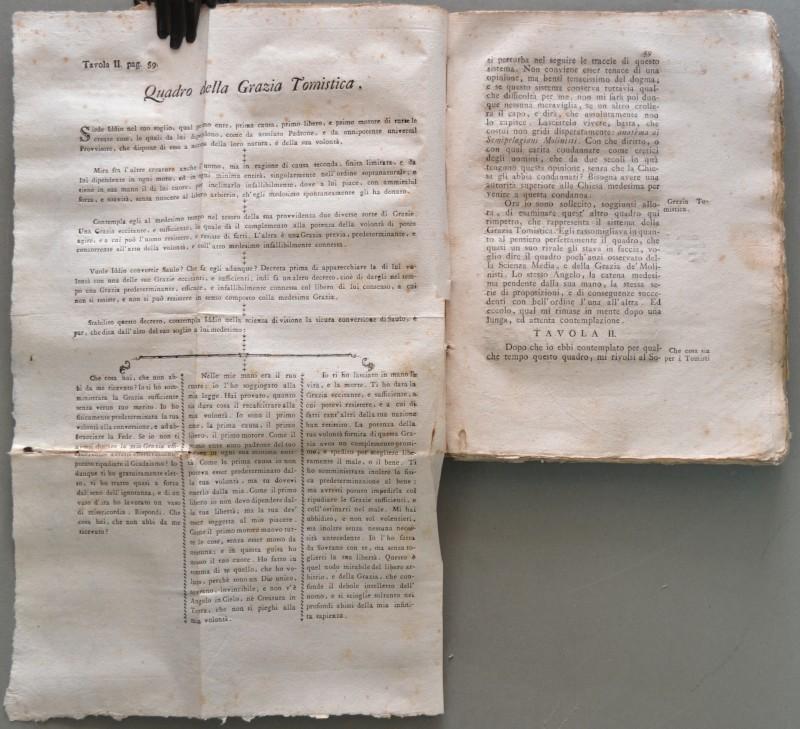 Tavola II. pag. 59.
Quadro della Grazia Tomistica.
Siede Iddio nel suo soglio, qual primo ente, prima causa, primo libero, e primo motore di tutte le
create cose, le quali da lui dipendono, come da assoluto Padrone, e da onnipotente universal
Provvisore, che dispone di esse a norma della loro natura, e della sua volontà.
Mira fra l'altre creature anche l'uomo, ma in ragione di causa seconda, finita limitata, e da
lui dipendente in ogni moto, ed in ogni minima entità, singolarmente nell'ordine soprannaturale; e
tiene in sua mano il di lui cuore, per inclinarlo infallibilmente, dove a lui piace, con ammirabil
forza, e soavità, senza nuocere al libero arbitrio, ch'egli medesimo spontaneamente gli ha donato.
Contempla egli al medesimo tempo nel tesoro della sua provvidenza due diverse sorte di Grazie.
Una Grazia eccitante, e sufficiente, la quale dà il complemento alla potenza della volontà di poter
agire, e a cui può l'uomo resistere, e resiste di fatti. L'altra è una Grazia previa, predeterminante, e
connessa coll'atto della volontà, e coll'atto medesimo infallibilmente connessa.
Vuole Iddio convertir Saulo? Che fa egli adunque? Decreta prima di apparecchiare la di lui vo-
lontà con una delle sue Grazie eccitanti, e sufficienti; indi fa un altro decreto, cioè di dargli nel tem-
po una Grazia predeterminante, efficace, e infallibilmente connessa col libero di lui consenso, a cui
non si resiste, e non si può resistere in senso composto colla medesima Grazia.
Stabilito questo decreto, contempla Iddio nella scienza di visione la sicura conversione di Saulo, e
par, che dica dall'alto del suo soglio a lui medesimo:
Che cosa hai, che non ab-
bi da me ricevuto? Io ti ho som-
ministrata la Grazia sufficiente
senza verun tuo merito. Io ho
fisicamente predeterminata la tua
volontà alla conversione, e ad ab-
bracciare la Fede. Se io non ti
potevi ripudiare il Giudaismo? Io
dunque ti ho gratuitamente elet-
to, ti ho tratto quasi a forza
dal seno dell'ignoranza, e di un
vaso d'ira ho lavorato un vaso
di misericordia. Rispondi. Che
cosa hai, che non abbi da me
ricevuto?
Nelle mie mani era il tuo
cuore: io l'ho soggiogato alla
mia legge. Hai provato, quanto
sia dura cosa il ricalcitrare alla
mia volontà. Io sono il primo
ente, la prima causa, il primo
libero, il primo motore. Come il
primo ente sono padrone del tuo
essere in ogni sua minima enti-
tà. Come la prima causa io non
poteva esser predeterminato dal-
la tua volontà, ma tu dovevi
esserlo dalla mia. Come il primo
libero io non devo dipendere dal-
la tua libertà; ma la tua dev'
esser soggetta al mio piacere.
Come il primo motore muovo tut-
te le cose, senza esser mosso da
nessuna; e in questa guisa ho
mosso il tuo cuore. Ho fatto in
somma di te quello, che ho vo-
luto, perchè sono un Dio unico,
sovrano, invincibile, e non v'è
Angelo in Cielo, nè Creatura in
Terra, che non si pieghi alla
mia volontà.
Io ti ho lasciato in mano la
vita, e la morte. Ti ho data la
Grazia eccitante, e sufficiente, a
cui potevi resistere, e a cui di
fatti tant'altri della tua nazione
han resistito. La potenza della
tua volontà fornita di questa Gra-
zia avea un complemento prossi-
mo, e spedito per scegliere libe-
ramente il male, o il bene. Ti
ho somministrata inoltre la fisi-
ca predeterminazione al bene;
ma avresti potuto impedirla col
ripudiare le Grazie sufficienti, e
coll'ostinarti nel male. Mi hai
ubbidito, e non sol volentieri,
ma inoltre senza nessuna neces-
sità antecedente. Io l'ho fatta
da Sovrano con te, ma senza to-
glierti la tua libertà. Questo è
quel nodo mirabile del libero ar-
bitrio, e della Grazia, che con-
fonde il debole intelletto dell'
uomo, e si scioglie soltanto nei
profondi abissi della mia infini-
ta sapienza.
59
si perturba nel seguire le traccie di questo
sistema. Non conviene esser tenace di una
opinione, ma bensì tenacissimo del dogma,
e se questo sistema conserva tuttavia qual-
che difficoltà per me, non mi farà poi dun-
que nessuna meraviglia, se un altro crolle-
rà il capo, e dirà, che assolutamente non
lo capisce. Lasciatelo vivere, basta, che
costui non gridi disperatamente: anatema ai
Semipelagiani Molinisti. Con che diritto, o
con qual carità condannare come eretici
degli uomini, che da due secoli in quà
tengono questa opinione, senza che la Chie-
sa gli abbia condannati? Bisogna avere una
autorità superiore alla Chiesa medesima per
venire a questa condanna.
Ora io sono sollecito, soggiunsi allo-
ra, di esaminare quest'altro quadro qui
rimpetto, che rappresenta il sistema della
Grazia Tomistica. Egli rassomigliava in quan-
to al pensiero perfettamente il quadro, che
quasi un suo rivale gli stava in faccia,
voglio dire il quadro poch'anzi osservato del-
la Scienza Media, e della Grazia de' Moli-
nisti. Lo stesso Angelo, la catena medesi-
ma pendente dalla sua mano, la stessa se-
rie di proposizioni, e di conseguenze succe-
denti con bell'ordine l'una all'altra. Ed
eccolo, qual mi rimase in mente dopo una
lunga, ed attenta contemplazione.
Grazia To-
mistica.
TAVOLA II.
Dopo che io ebbi contemplato per qual-
che tempo questo quadro, mi rivolsi al So-
Che cosa sia
per i Tomisti